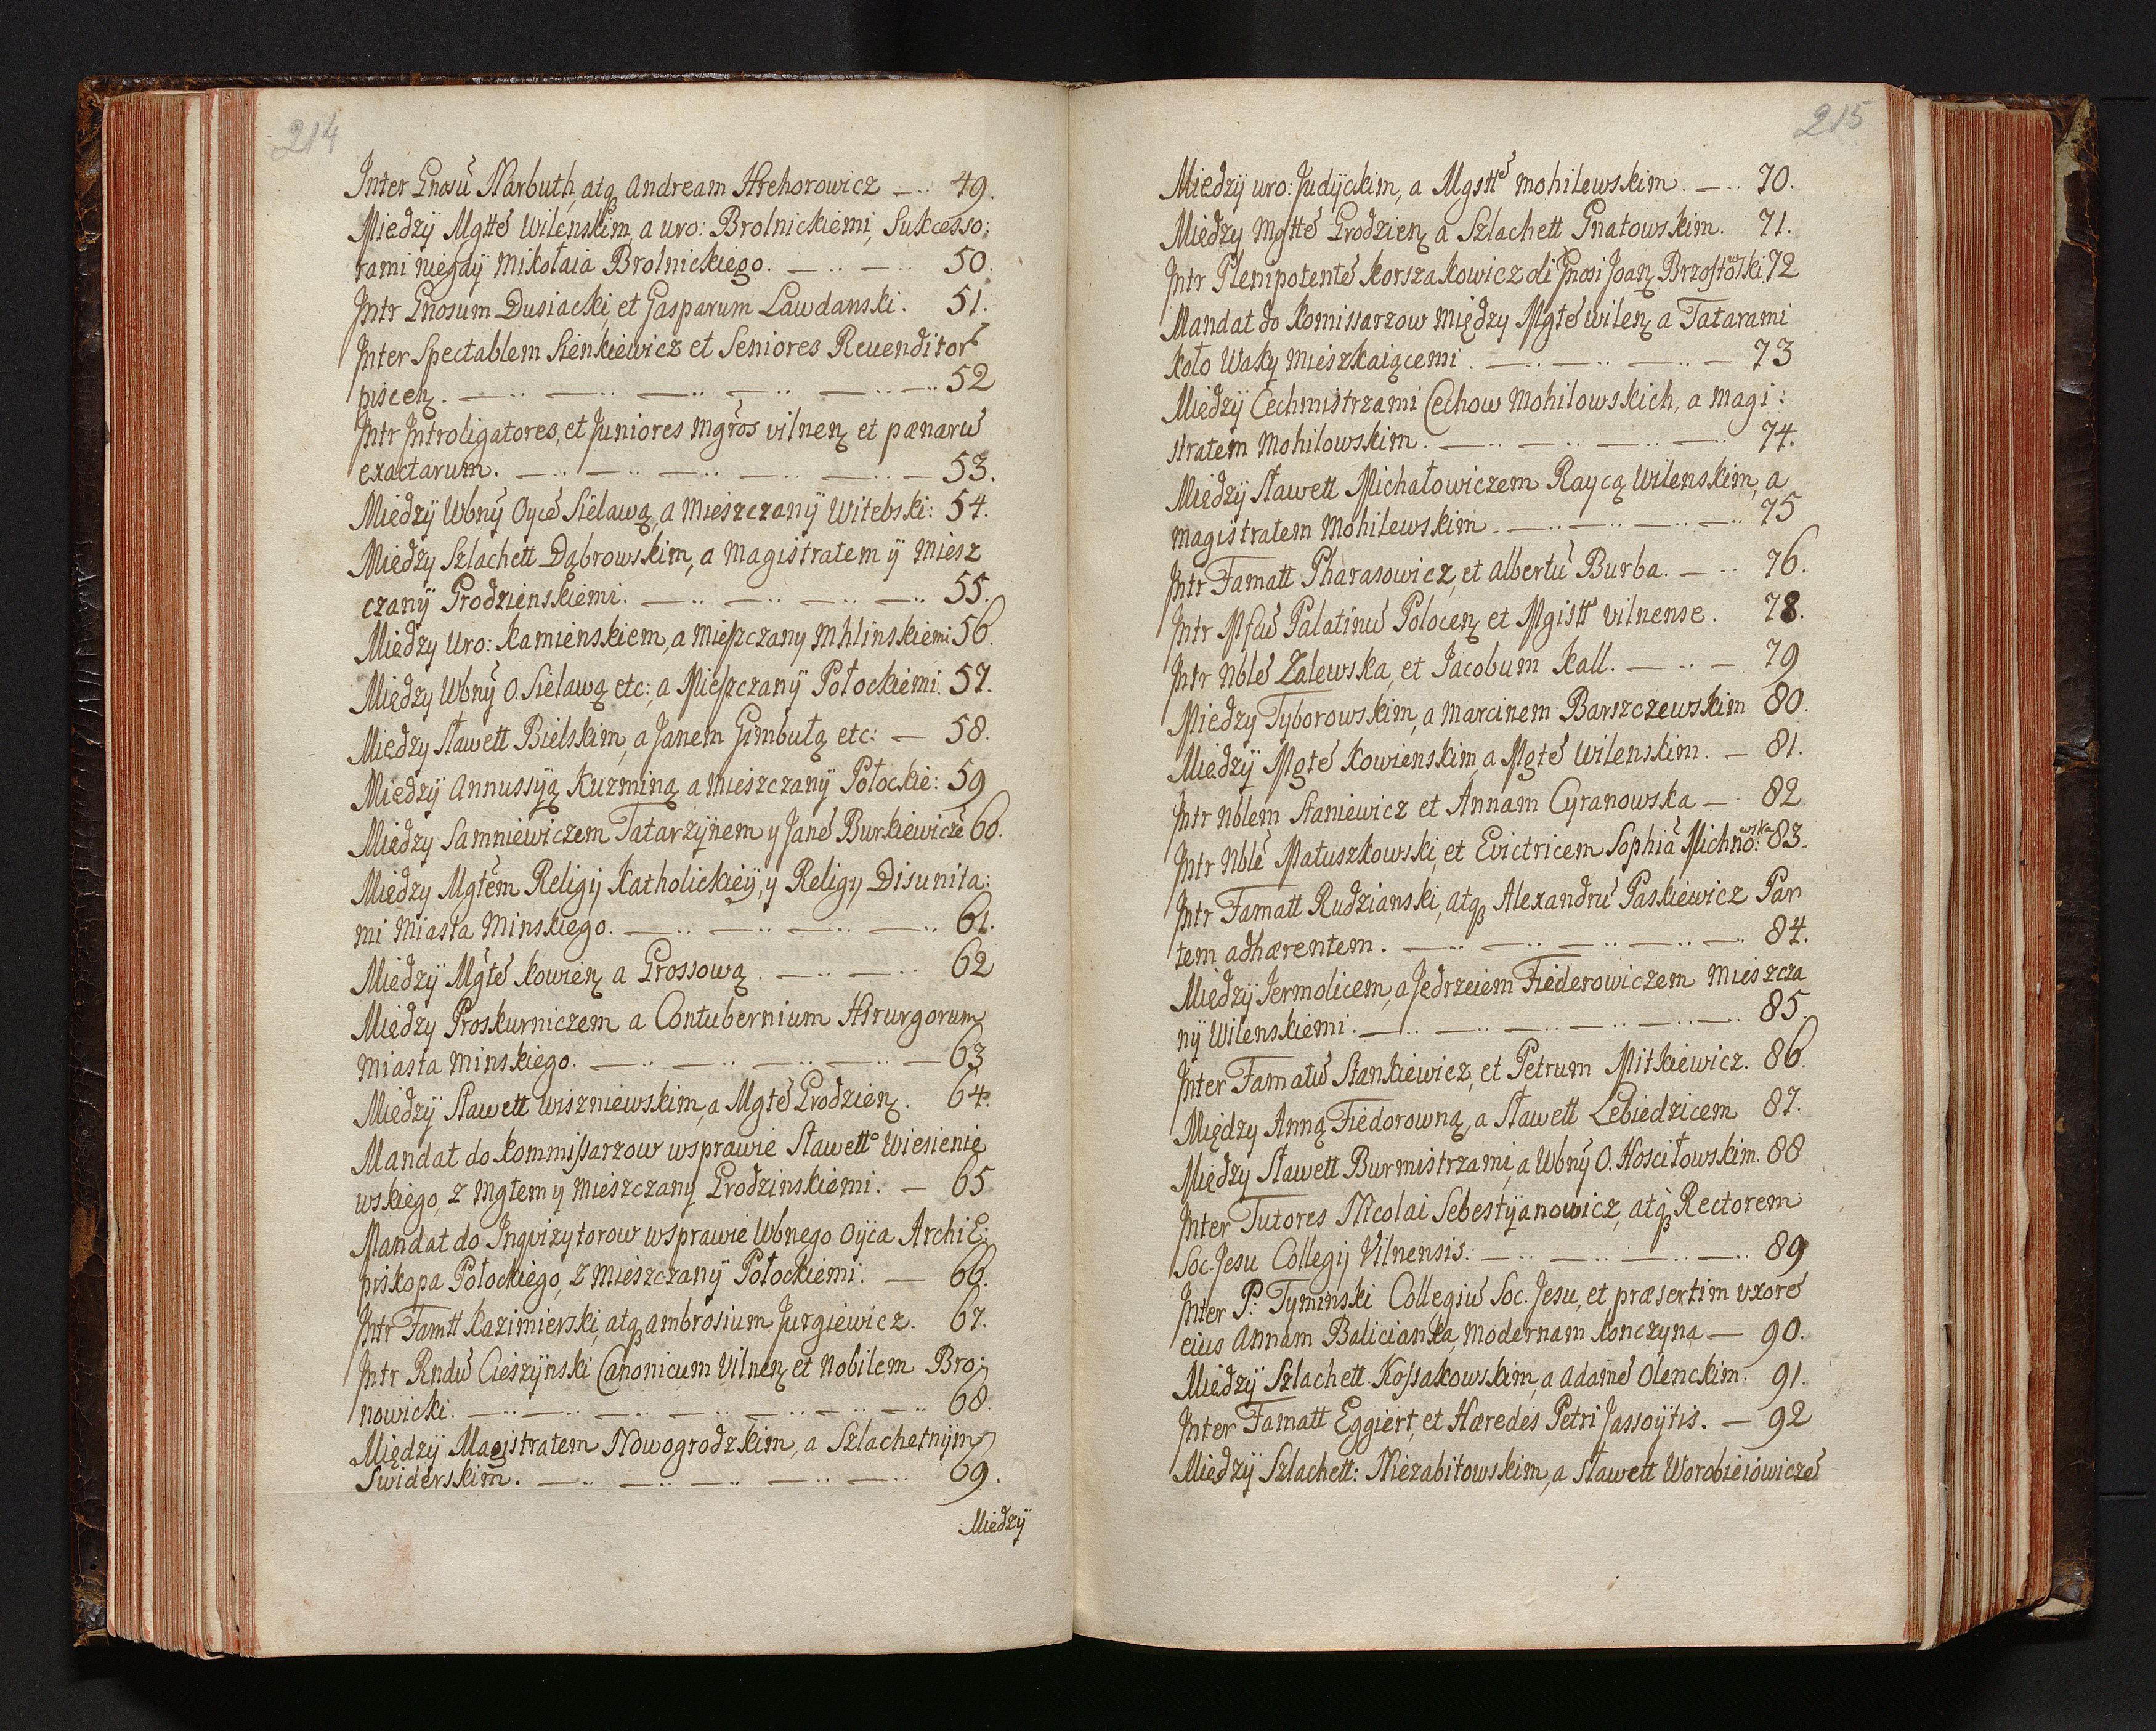 214
Inter Gnosu Narbuth, atq Andream Hrehorowicz — .. 49.
Między Mgttē Wilenskim, a uro: Brolnickiemi, Sukcesso:
rami niegdÿ Mikołaia Brolnickiego. — .. — .. 50.
Intr Gnosum Dusiacki, et Gasparum Lawdanski. 51.
Inter Spectablem Sienkiewicz et Seniores Reuenditor
piscen. — .. — .. — .. — .. — .. — .. 52
Intr Introligatores, et Juniores Mgros vilnen et pænarū
exactarum. — .. — .. — .. — .. — .. — 53.
Międzÿ Wbnÿ Oyce Sielawą, a Mieszczanÿ Witebski: 54.
Między Szlachett Dąbrowskim, a Magistratem ÿ Miesz
czanÿ Grodzienskiemi. — .. — .. — .. — .. 55.
Między Uro: Kamienskiem, a Mieszczany Mhlinskiemi 56.
Między Wbnÿ O. Sielawą etc: a Mieszczanÿ Połockiemi. 57.
Między Sławett Bielskim, a Janem Gimbutą etc: — 58.
Międzÿ Annussÿą Kuzminą a Mieszczanÿ Połockie: 59
Między Samniewiczem Tatarzÿnem y Janē Burkiewiczē 60.
Między Mgtem Religij Katholickieÿ, y Religy Disunita:
mi Miasta Minskiego. — .. — .. — .. — .. 61.
Międzÿ Mgtē Kowien a Grossową. — .. — .. 62
Między Proskurniczem a Contubernium Hirurgorum
Miasta Minskiego. — .. — .. — .. — .. — 63
Międzÿ Sławett Wiszniewskim, a Mgtē Grodzien. 64.
Mandat do Kommissarzow wsprawie Sławetto Wiesienie
wskiego, z Mgtem y Mieszczany Grodzinskiemi. — 65
Mandat do Inqvizytorow wsprawie Wbnego Oÿca ArchiE:
piskopa Połockiego, z Mieszczanÿ Połockiemi. — 66.
Intr Famtt Kazimierski, atq Ambrosium Jurgiewicz. 67.
Intr Rndū Cieszÿnski, Canonicum Vilnen et Nobilem Bro:
nowicki. — .. — .. — .. — .. — .. — .. — .. 68.
Międzÿ Magistratem Nowogrodzkim, a Szlachetnÿm
Swiderskim. — .. — .. — .. — .. — .. 69.
Międzÿ
215
Międzÿ uro: Judÿckim, a Mgsttē Mohilewskim. — .. 70.
Między Mgttē Grodzien a Szlachett Gnatowskim. 71.
Intr Plenipotentē Korszakowicz oli Gnosi Joan Brzostowski. 72
Mandat do Komissarzow Między Mgtē wilen a Tatarami
koło Waky Mieszkaiącemi. — .. — .. — .. — 73
Międzÿ Cechmistrzami Cechow Mohilowskich, a Magi:
stratem Mohilowskim. — .. — .. — .. — .. 74.
Międzÿ Sławett Michałowiczem Raycą Wilenskim, a
Magistratem Mohilewskim. — .. — .. — .. — .. 75
Intr Famatt Pharasowicz, et Albertū Burba. — .. 76.
Intr Mfcū Palatinū Polocen et Mgistt vilnense. 78.
Intr Nblē Zalewska, et Jacobum Kall. — .. — 79
Między Tyborowskim, a Marcinem Barszczewskim 80.
Międzÿ Mgtē Kowienskim, a Mgtē Wilenskim. — 81.
Intr Nblem Staniewicz et Annam Cyranowska — .. 82
Intr Nblē Matuszkowski, et Evictricem Sophiā Michno:wska 83.
Intr Famatt Rudzianski, atq Alexandrū Paskiewicz Par
tem adhærentem. — .. — .. — .. — .. — .. 84.
Międzÿ Jermolicem, a Jędrzeiem Fiederowiczem Mieszcza
nÿ Wilenskiemi. — .. — .. — .. — .. — .. 85.
Inter Famatū Stankiewicz, et Petrum Mitkiewicz. 86.
Między Anną Fiedorowną, a Sławett Lebiedzicem 87.
Między Sławett Burmistrzami, a Wbnÿ O. Hosciłowskim. 88
Inter Tutores Nicolai Sebestÿanowicz, atq Rectorem
Soc. Jesu Collegij Vilnensis. — .. — .. — .. — .. 89
Inter P. Tyminski Collegiū Soc. Jesu, et præsertim vxorē
eius Annam Balicianka, modernam Konczyna — 90.
Międzÿ Szlachett Kossakowskim, a Adamē Olenckim. 91.
Inter Famatt Eggiert, et Hæredes Petri Jassoÿtis. — 92
Międzÿ Szlachett: Niezabitowskim, a Sławett Worobieiowiczē